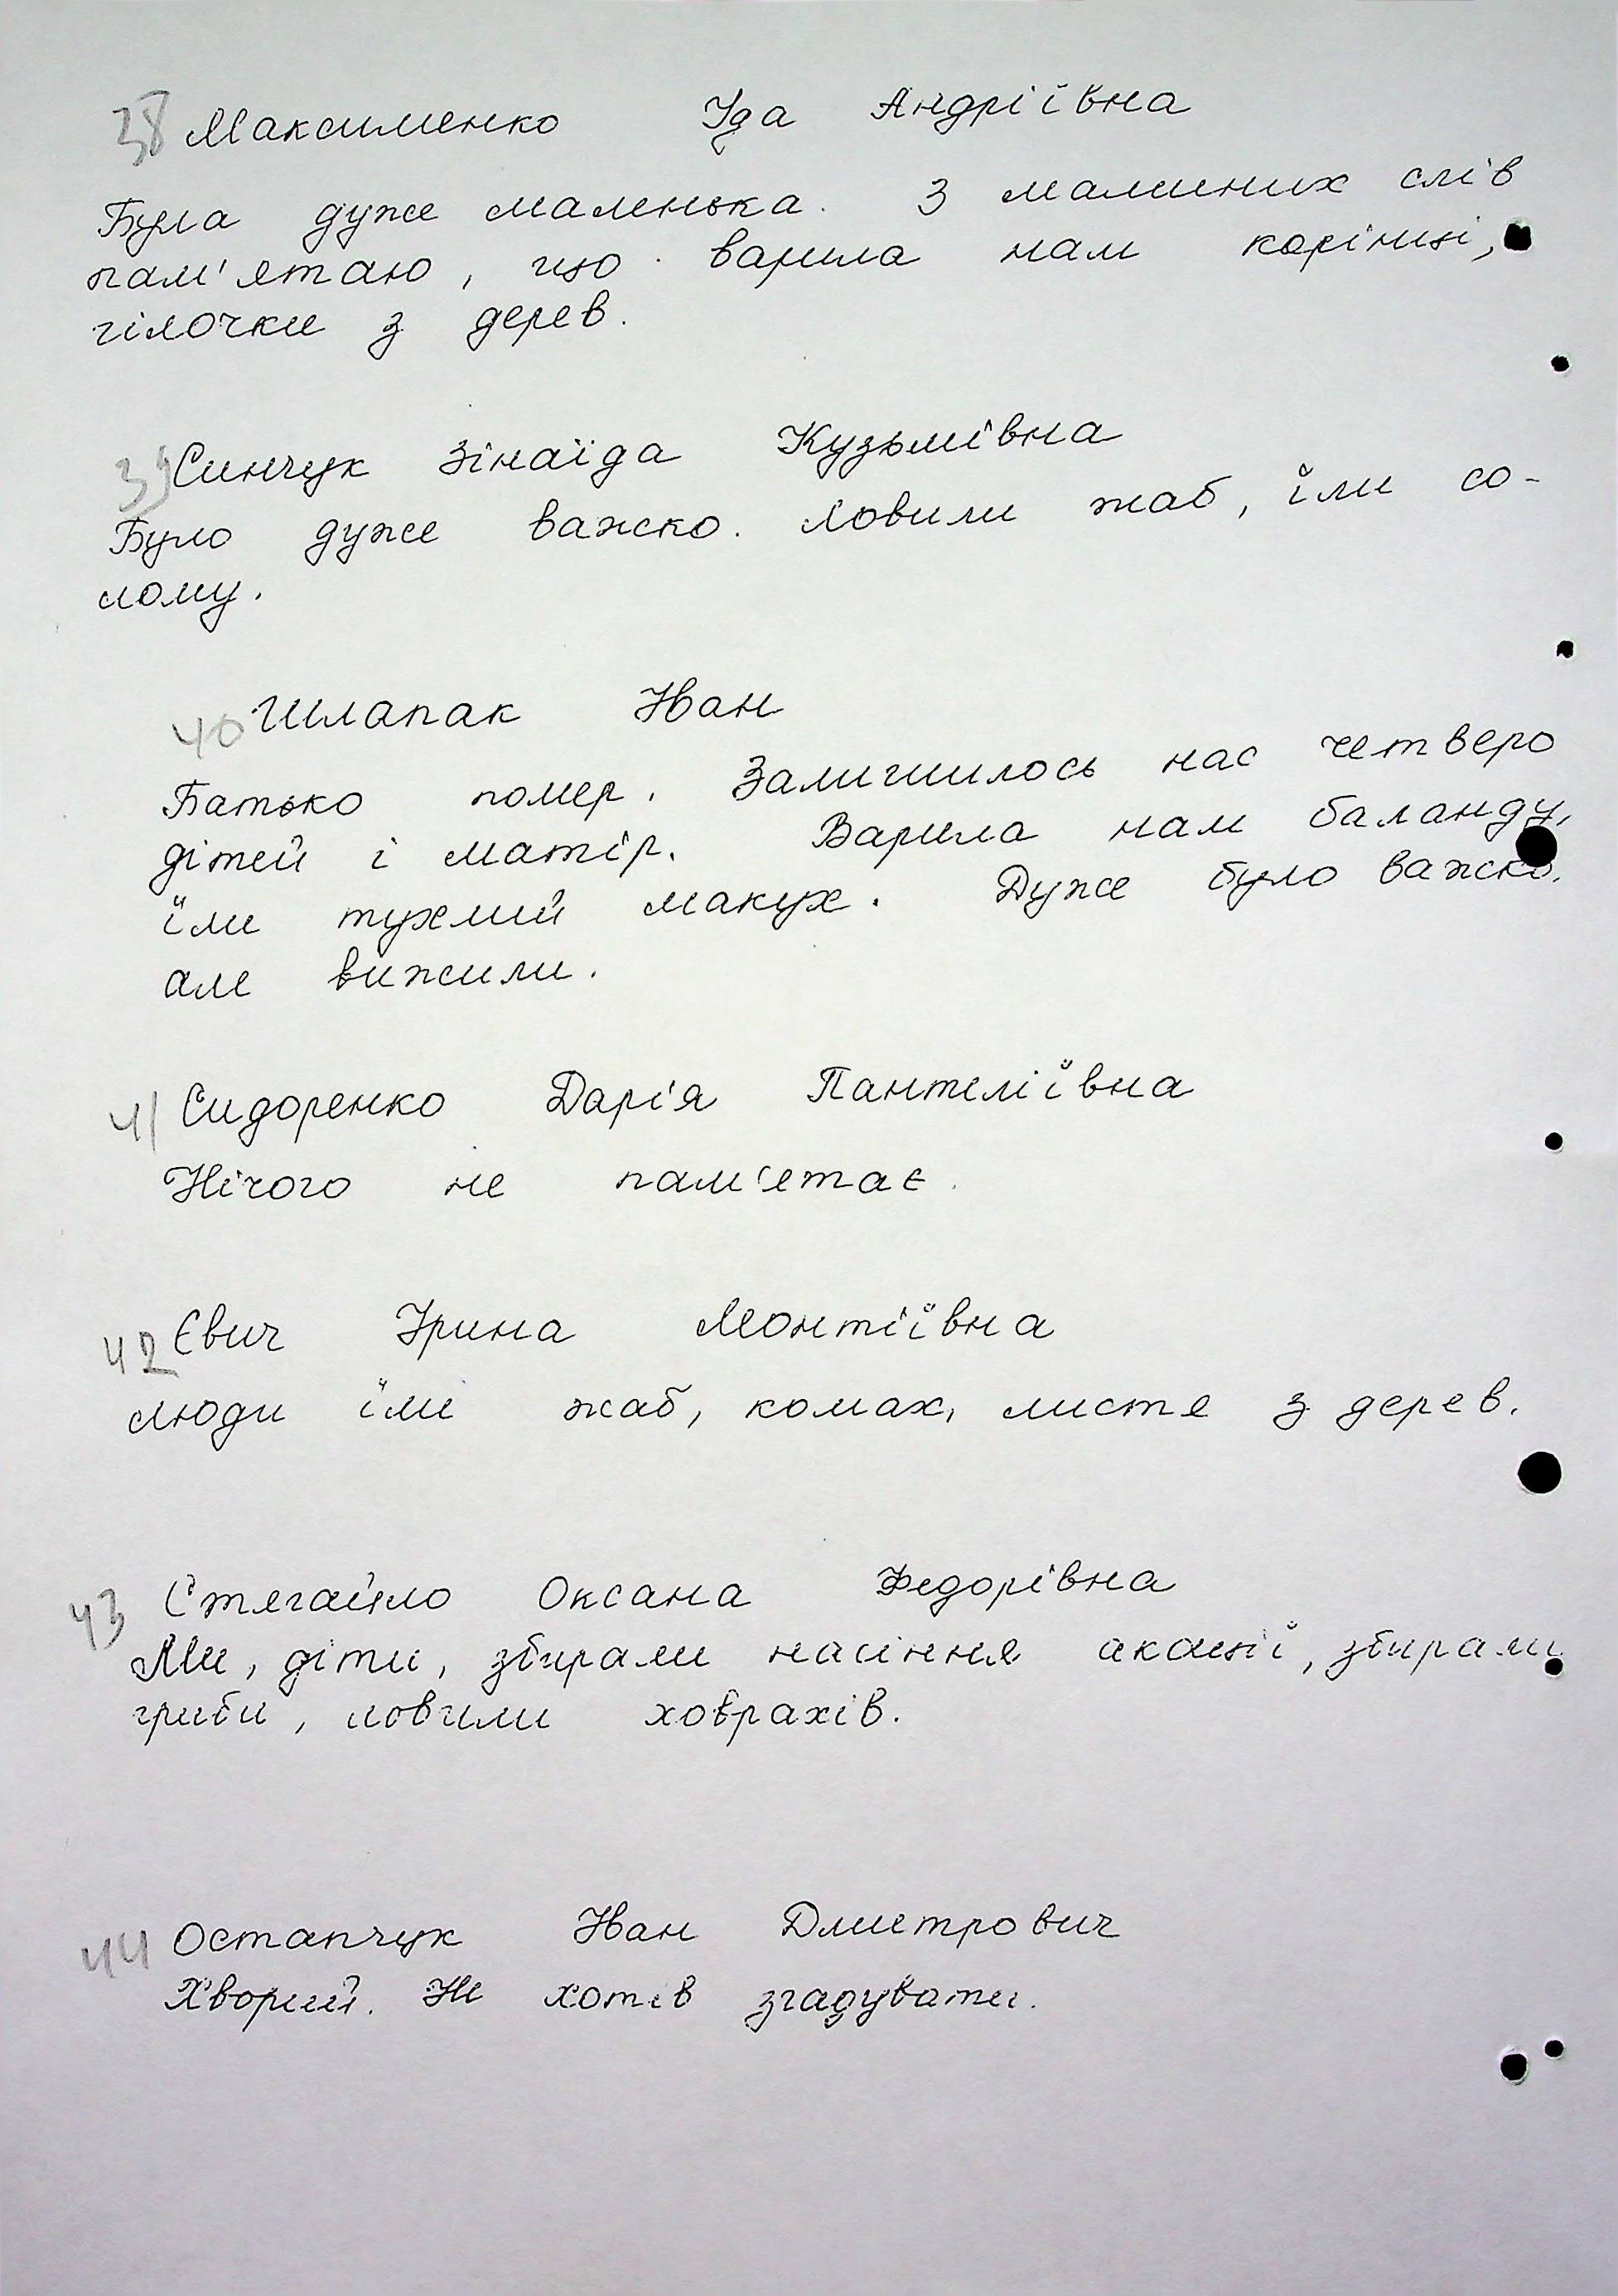 38 Максименко Іда Андріївна
Була дуже маленька. З маминих слів
пам'ятаю, що варила нам корінці,
гілочки з дерев.
39 Синчук Зінаїда Кузьмівна
Було дуже важко. Ловили жаб, їли со-
лому.
40 Шлапак Іван
Батько помер. Залишилось нас четверо
дітей і матір. Варила нам баланду,
їли тухлий макух. Дуже було важко,
але вижили.
41 Сидоренко Дарія Пантеліївна
Нічого не пам'ятає.
42 Євич Ірина Монтіївна
Люди їли жаб, комах, листя з дерев.
43 Стягайло Оксана Федорівна
Ми, діти, збирали насіння акації, збирали
гриби, ловили ховрахів.
44 Остапчук Іван Дмитрович
Хворий. Не хотів згадувати.